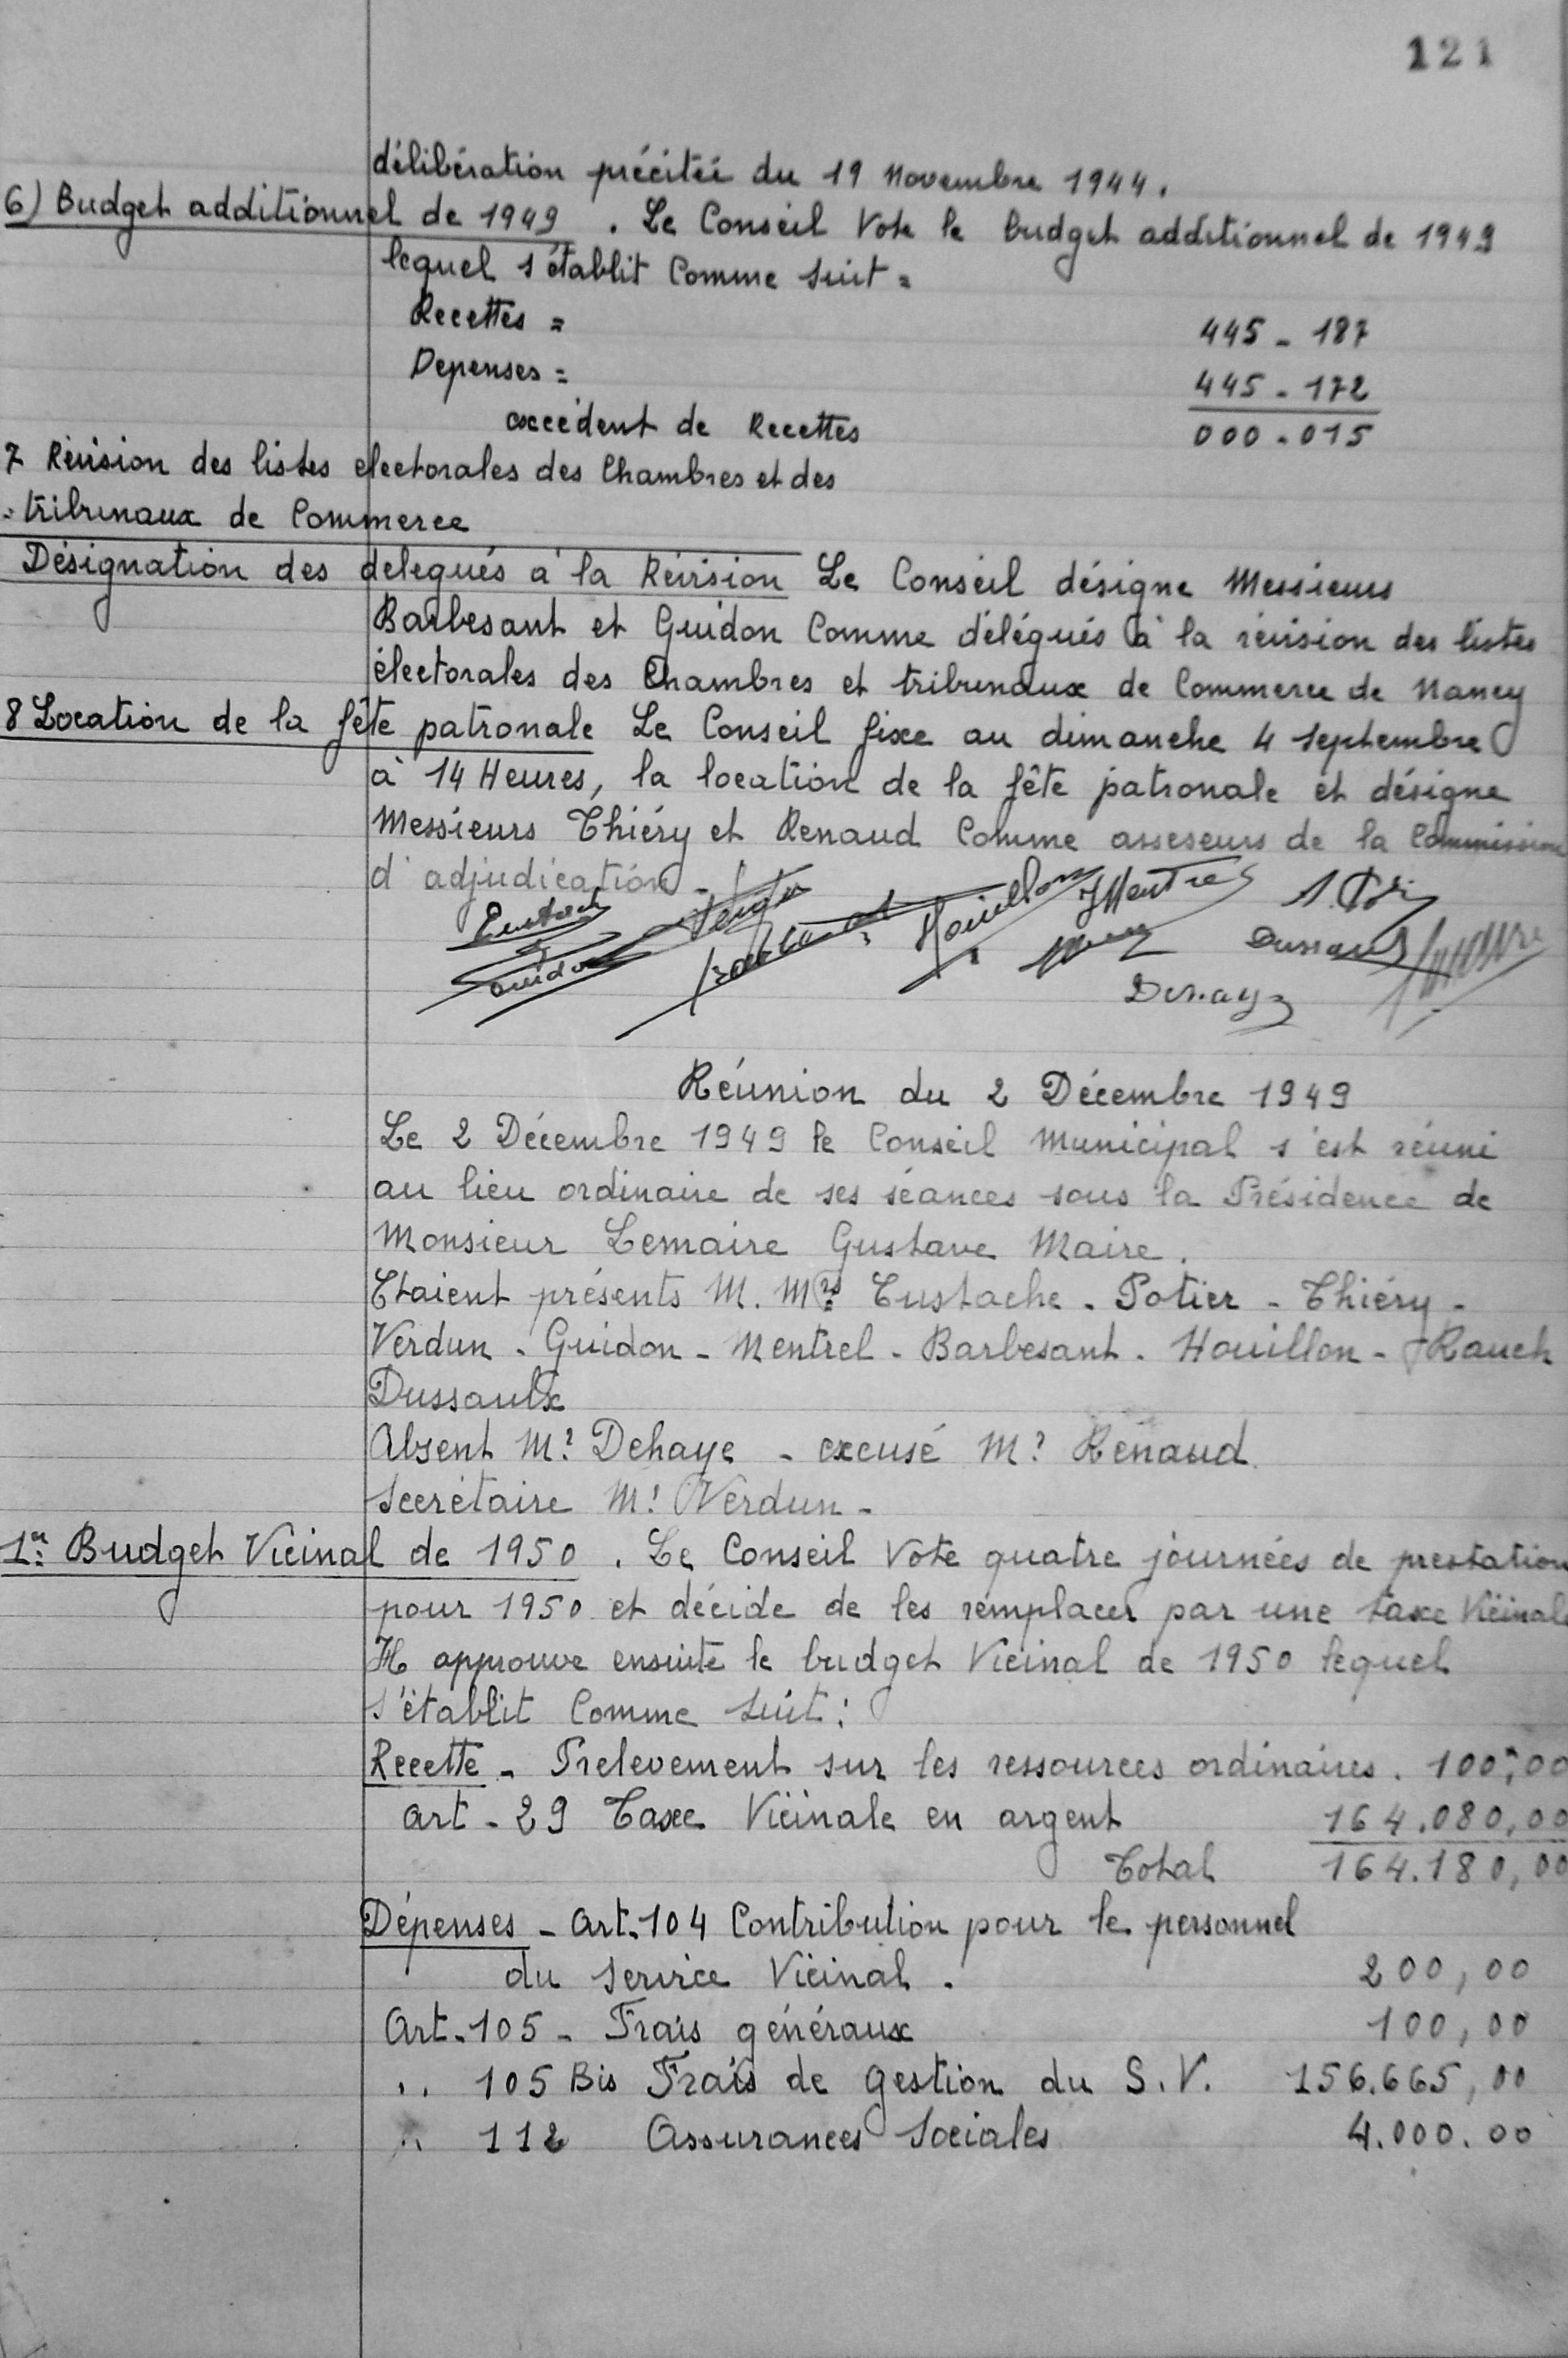 121
délibération précitée du 19 Novembre 1944.
6) Budget additionnel de 1949 . Le Conseil Vote le budget additionnel de 1949
lequel s'établit Comme suit =
Recettes = 445 - 187
Depenses = 445 - 172
excédent de Recettes 000 - 015
7 Révision des listes electorales des Chambres et des
tribunaux de Commerce
Désignation des delegués à la Révision Le Conseil désigne Messieurs
Barbesant et Guidon Comme délégués à la révision des listes
électorales des Chambres et tribunaux de Commerce de Nancy
8 Location de la fête patronale Le Conseil fixe au dimanche 4 Septembre
à 14 Heures, la location de la fête patronale et désigne
Messieurs Thiéry et Renaud Comme asseseurs de la Commission
d'adjudication -
Eustach
Guidon Barbesant Houillon JMentrel
Dussaulx
Réunion du 2 Décembre 1949
Le 2 Décembre 1949 le Conseil Municipal s'est réuni
au lieu ordinaire de ses séances sous la Présidence de
Monsieur Lemaire Gustave Maire.
Etaient présents M. Mrs Eustache - Potier - Thiéry -
Verdun - Guidon - Mentrel - Barbesant - Houillon - Rauch
Dussaulx
Absent Mr Dehaye - excusé Mr Rénaud
Secrétaire Mr Verdun -
1er Budget Vicinal de 1950 . Le Conseil Vote quatre journées de prestation
pour 1950 et décide de les remplacer par une taxe Vicinale
Il approuve ensuite le budget Vicinal de 1950 lequel
s'établit Comme suit :
Recette - Prelevement sur les ressources ordinaires . 100,00
art - 29 Taxe Vicinale en argent 164.080,00
Total 164.180,00
Dépenses - art. 104 Contribution pour le personnel
du Service Vicinal . 200,00
Art. 105 - Frais généraux 100,00
.. 105 Bis Frais de gestion du S.V. 156.665,00
.. 112 Assurances Sociales 4.000.00